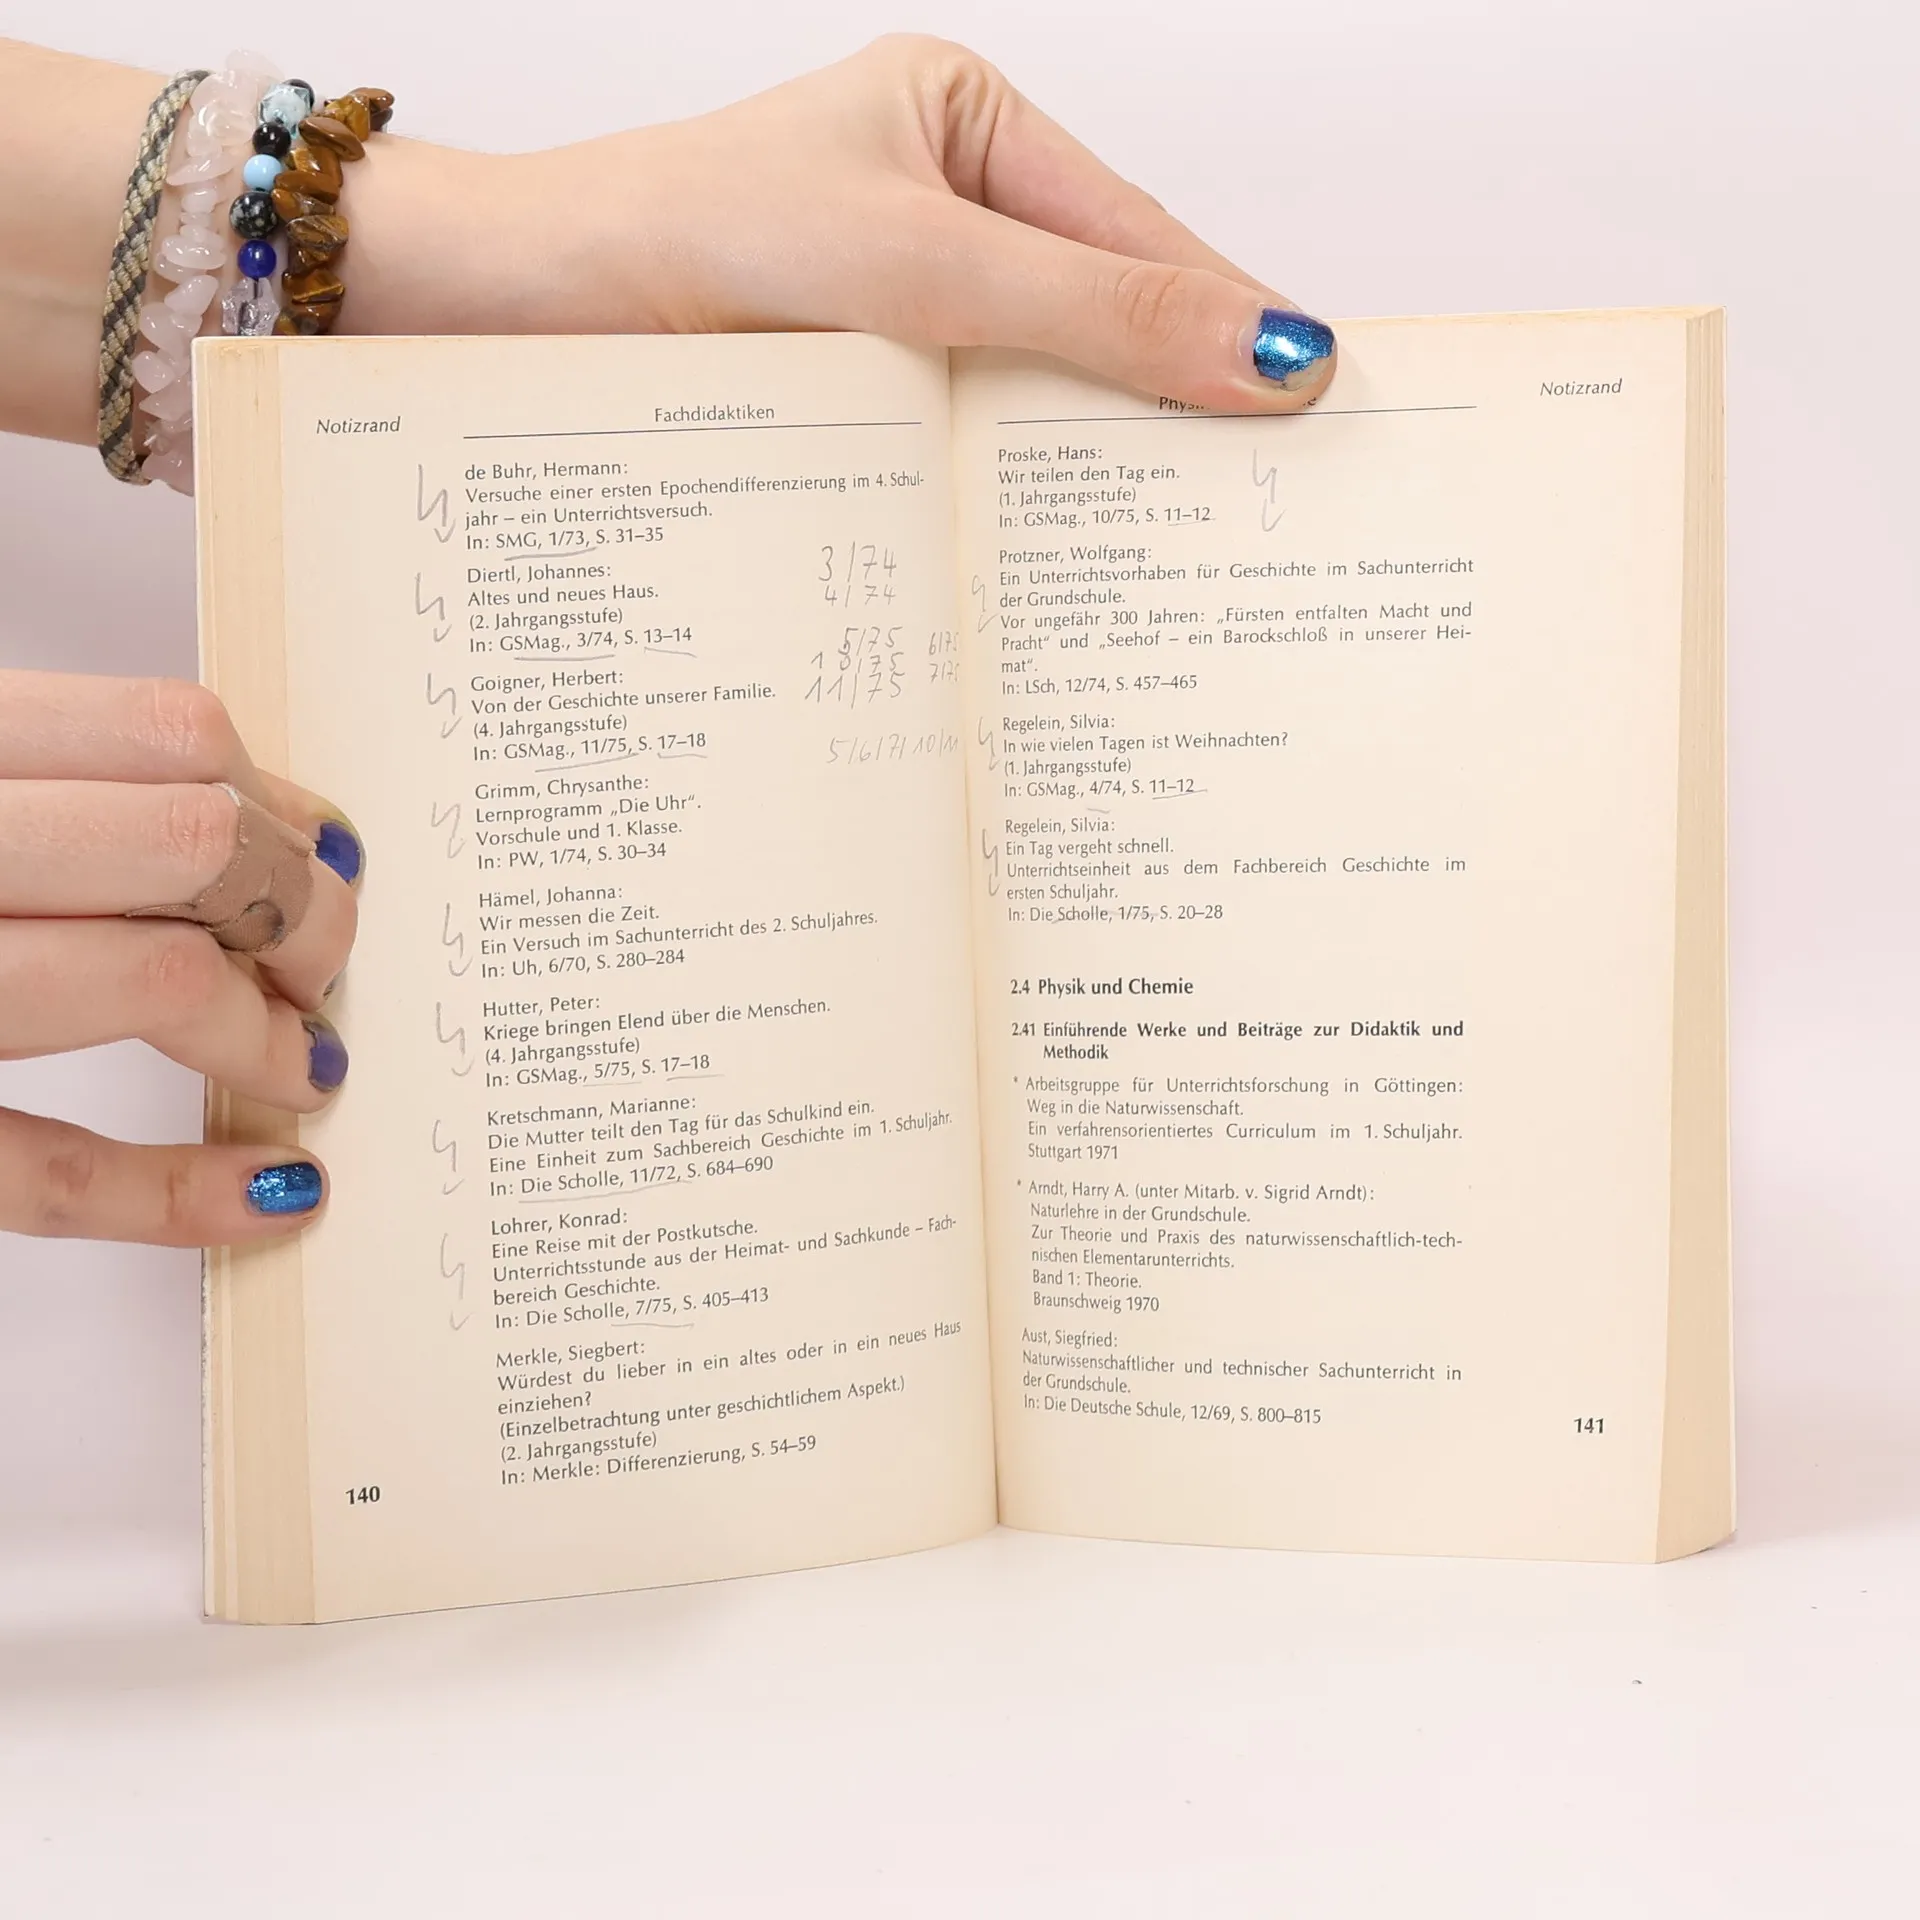 Notizrand
Fachdidaktiken
de Buhr, Hermann:
Versuche einer ersten Epochendifferenzierung im 4. Schul-
jahr – ein Unterrichtsversuch.
In: SMG, 1/73, S. 31–35
Diertl, Johannes:
Altes und neues Haus.
(2. Jahrgangsstufe)
In: GSMag., 3/74, S. 13–14
3/74
4/74
5/75 6/75
11/75
Goigner, Herbert:
Von der Geschichte unserer Familie.
(4. Jahrgangsstufe)
In: GSMag., 11/75, S. 17–18
5/6/7/10/11
Grimm, Chrysanthe:
Lernprogramm „Die Uhr“.
Vorschule und 1. Klasse.
In: PW, 1/74, S. 30–34
Hämel, Johanna:
Wir messen die Zeit.
Ein Versuch im Sachunterricht des 2. Schuljahres.
In: Uh, 6/70, S. 280–284
Hutter, Peter:
Kriege bringen Elend über die Menschen.
(4. Jahrgangsstufe)
In: GSMag., 5/75, S. 17–18
Kretschmann, Marianne:
Die Mutter teilt den Tag für das Schulkind ein.
Eine Einheit zum Sachbereich Geschichte im 1. Schuljahr.
In: Die Scholle, 11/72, S. 684–690
Lohrer, Konrad:
Eine Reise mit der Postkutsche.
Unterrichtsstunde aus der Heimat- und Sachkunde – Fach-
bereich Geschichte.
In: Die Scholle, 7/75, S. 405–413
Merkle, Siegbert:
Würdest du lieber in ein altes oder in ein neues Haus
einziehen?
(Einzelbetrachtung unter geschichtlichem Aspekt.)
(2. Jahrgangsstufe)
In: Merkle: Differenzierung, S. 54–59
140
Notizrand
Proske, Hans:
Wir teilen den Tag ein.
(1. Jahrgangsstufe)
In: GSMag., 10/75, S. 11–12
Protzner, Wolfgang:
Ein Unterrichtsvorhaben für Geschichte im Sachunterricht
der Grundschule.
Vor ungefähr 300 Jahren: „Fürsten entfalten Macht und
Pracht“ und „Seehof – ein Barockschloß in unserer Hei-
mat“.
In: LSch, 12/74, S. 457–465
Regelein, Silvia:
In wie vielen Tagen ist Weihnachten?
(1. Jahrgangsstufe)
In: GSMag., 4/74, S. 11–12
Regelein, Silvia:
Ein Tag vergeht schnell.
Unterrichtseinheit aus dem Fachbereich Geschichte im
ersten Schuljahr.
In: Die Scholle, 1/75, S. 20–28
2.4 Physik und Chemie
2.41 Einführende Werke und Beiträge zur Didaktik und
Methodik
* Arbeitsgruppe für Unterrichtsforschung in Göttingen:
Weg in die Naturwissenschaft.
Ein verfahrensorientiertes Curriculum im 1. Schuljahr.
Stuttgart 1971
* Arndt, Harry A. (unter Mitarb. v. Sigrid Arndt):
Naturlehre in der Grundschule.
Zur Theorie und Praxis des naturwissenschaftlich-tech-
nischen Elementarunterrichts.
Band 1: Theorie.
Braunschweig 1970
Aust, Siegfried:
Naturwissenschaftlicher und technischer Sachunterricht in
der Grundschule.
In: Die Deutsche Schule, 12/69, S. 800–815
141